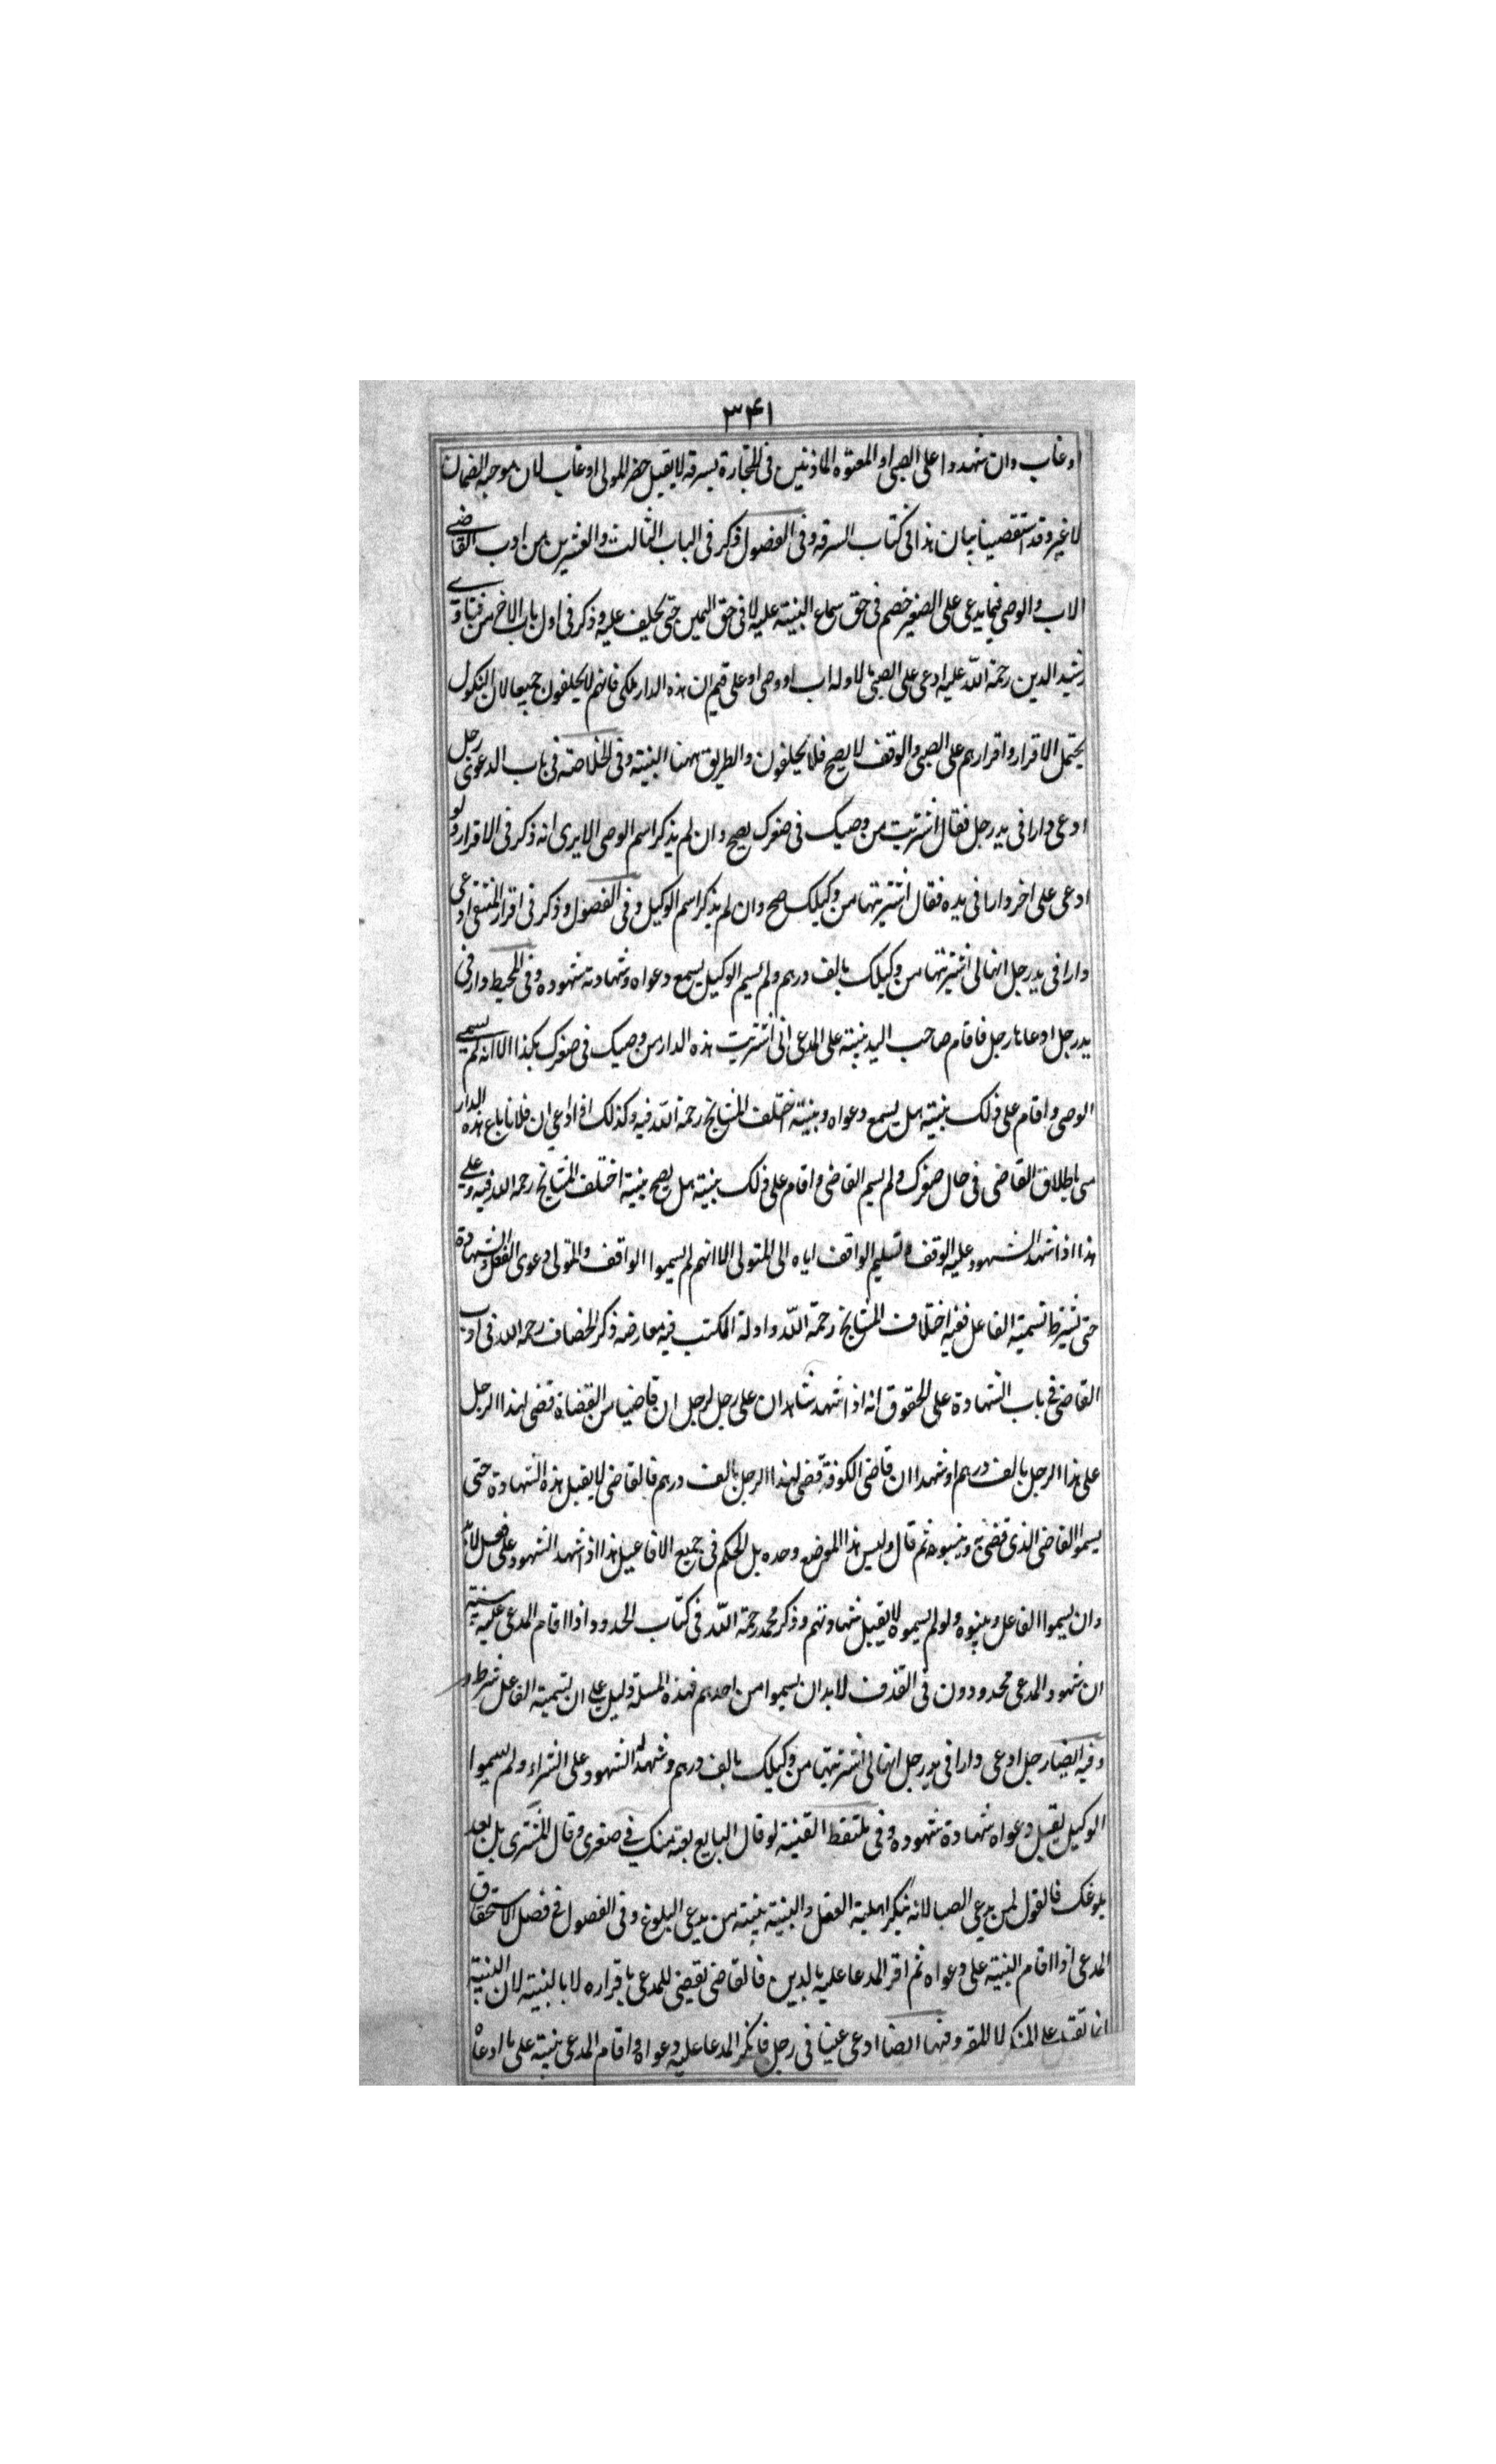 ۳۴۱
او غاب وان شهدوا على الصبى او المعتوه الماذنين فى التجارة بسرقة لا يقبل حضر المولى او غاب لان موجبه الضمان
لا غير وقد استقصينا بيان هذا فى كتاب السرقه وفى الفصول ذكر فى الباب الثالث والعشرين من ادب القاضى
الاب والوصى فيما يدعى على الصغير خصم فى حق سماع البينة عليه لا فى حق اليمين حتى يحلف عليه وذكر فى اول باب الاخر من فتاوى
رشيد الدين رحمة الله عليه ادعى على الصبى لاوله اب او وصى او على قيم ان هذه الدار ملكى فانهم لا يحلفون جميعا لان النكول
يحتمل الاقرار واقرارهم على الصبى والوقف لا يصح فلا يحلفون والطريق ههنا البينة وفى الخلاصة فى باب الدعوى رجل
ادعى دارا فى يد رجل فقال اشتريت من وصيك فى صغرك يصح وان لم يذكر اسم الوصى الا يرى انه ذكر فى الاقرار ولو
ادعى على اخر دارا فى يده فقال اشتريتها من وكيلك صح وان لم يذكر اسم الوكيل وفى الفصول وذكر فى اقرار المنتقى ادعى
دارا فى يد رجل انها لى اشتريتها من وكيلك بالف درهم ولم يسم الوكيل يسمع دعواه وشهادة شهوده وفى المحيط دار فى
يد رجل ادعاها رجل فاقام صاحب اليد بينة على المدعى انى اشتريت هذه الدار من وصيك فى صغرك بكذا الا انه لم يسمى
الوصى واقام على ذلك بينة هل يسمع دعواه وبينة اختلف المشايخ رحمة الله فيه وكذلك اذا ادعى ان فلانا باع هذه الدار
منى باطلاق القاضى فى حال صغرك ولم يسم القاضى واقام على ذلك بينة هل يصح بينة اختلف المشايخ رحمه الله فيه وعلى
هذا اذا شهد الشهود عليه الوقف وتسليم الواقف اياه الى المتولى الا انهم لم يسموا الواقف والمتولى دعوى الفعل والشهادة
حتى يشترط تسمية الفاعل ففيه اختلاف المشايخ رحمة الله وادلة الكتب فيه معارضه ذكر الخصاف رحمه الله فى ادب
القاضى فى باب الشهادة على الحقوق انه اذا شهد شاهدان على رجل لرجل ان قاضيا من القضاة قضى لهذا الرجل
على هذا الرجل بالف درهم او شهدا ان قاضى الكوفة قضى لهذا الرجل بالف درهم فالقاضى لا يقبل هذه الشهادة حتى
يسموا القاضى الذى قضى به وينسبوه ثم قال وليس هذا الموضع وحده بل الحكم فى جميع الافاعيل هذا اذا شهد الشهود على فعل لابد
وان يسموا الفاعل وينسبوه ولو لم يسموه لا يقبل شهادتهم وذكر محمد رحمة الله فى كتاب الحدود اذا اقام المدعى عليه بينة
ان شهود المدعى محدودون فى القذف لابد ان يسموا من احدهم فهذه المسئلة دليل على ان تسمية الفاعل شرط
وفيه ايضا رجل ادعى دارا فى يد رجل انها لى اشتريتها من وكيلك بالف درهم وشهد له الشهود على الشراء ولم يسموا
الوكيل يقبل دعواه شهادة شهوده وفى ملتقط القنية لو قال البايع بعته منك فى صغرى وقال المشترى بل بعد
بلوغك فالقول لمن يدعى الصبا لانه ينكر اهلية العقل والبينة بينة من يدعى البلوغ وفى الفصول فى فصل الاستحقاق
المدعى اذا اقام البينة على دعواه ثم اقر المدعا عليه بالدين فالقاضى يقضى للمدعى باقراره لا بالبينة لان البينة
انما تقبل على المنكر لا المقر وفيها ايضا ادعى عينا فى رجل فانكر المدعا عليه دعواه واقام المدعى بينة على ما ادعاه